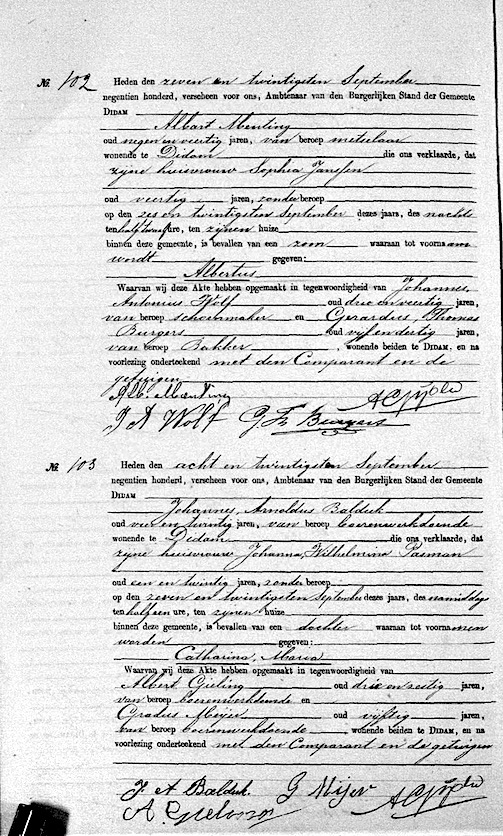 No. 102 Heden den zeven en twintigsten September
negentien honderd, verscheen voor ons, Ambtenaar van den Burgerlijken Stand der Gemeente
Didam
Albart Menting
oud negen en veertig jaren, van beroep metselaar
wonende te Didam die ons verklaarde, dat
zijne huisvrouw Sophia Janssen
oud veertig jaren, zonder beroep
op den zes en twintigsten September dezes jaars, des nachts
ten half twaalf ure, ten zijnen huize
binnen deze gemeente, is bevallen van een zoon waaraan tot voornaam
wordt gegeven:
Albertus
Waarvan wij deze Akte hebben opgemaakt in tegenwoordigheid van Johannes,
Antonius Wolf oud drie en veertig jaren,
van beroep schoenmaker en Gerardus, Thomas
Burgers oud vijf en dertig jaren,
van beroep Bakker, wonende beiden te Didam, en na
voorlezing onderteekend met den Comparant en de
getuigen
Alb. Menting
J A Wolf G Th Burgers
No. 103 Heden den acht en twintigsten September
negentien honderd, verscheen voor ons, Ambtenaar van den Burgerlijken Stand der Gemeente
Didam
Johannes, Arnoldus Balduk
oud vier en twintig jaren, van beroep boerenwerkdoende
wonende te Didam die ons verklaarde, dat
zijne huisvrouw Johanna, Wilhelmina Pasman
oud een en twintig jaren, zonder beroep
op den zeven en twintigsten September dezes jaars, des namiddags
ten half een ure, ten zijnen huize
binnen deze gemeente, is bevallen van een dochter waaraan tot voornamen
worden gegeven:
Catharina, Maria
Waarvan wij deze Akte hebben opgemaakt in tegenwoordigheid van
Albert Gieling oud drie en zestig jaren,
van beroep boerenwerkdoende en
Gradus Meijer oud vijftig jaren,
van beroep boerenwerkdoende, wonende beiden te Didam, en na
voorlezing onderteekend met den Comparant en de getuigen
J. A Balduk. G Mijer
A